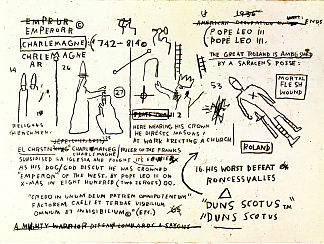 EMPEROR
EMPEROR ©
CHARLEMAGNE (742-814©
CHRLEMAGNE
AR
26
27
RELIGOUS
HENCHMEN
HERE WEARING HIS CROWN
HE DIRECTS MASONS
AT WORK ERECTING A CHURCH
CHARLEMAGNE RULER OF THE FRANKS
SUBSIDISED LA IGLESIA AND FOUGHT
AS HIS GOD HE WAS CROWNED
"EMPEROR" OF THE WEST, BY POPE LEO III ON
X-MAS IN EIGHT HUNDRED (TWO ZEROES) 00.
"CREDO IN UNUM DEUM PATREM OMNIPOTENTEM
FACTOREM CAELI ET TERRAE VISIBILIUM
OMNIUM ET INVISIBILIUM"© (ETC.)
A MIGHTY WARRIOR
POPE LEO III
POPE LEO III.
THE GREAT ROLAND IS AMBUSHED
BY A SARACENS POSSE:
MORTAL
FLESH
WOUND
53
ROLAND
16. HIS WORST DEFEAT @
RONCESVALLES
"DUNS SCOTUS"™
"DUNS SCOTUS